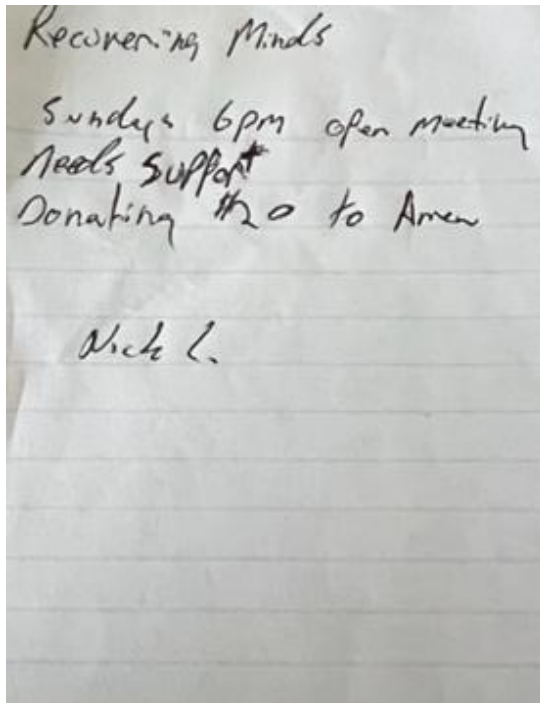 Recovering Minds
Sundays 6pm open meeting
needs support
Donating $20 to Area
Nick L.